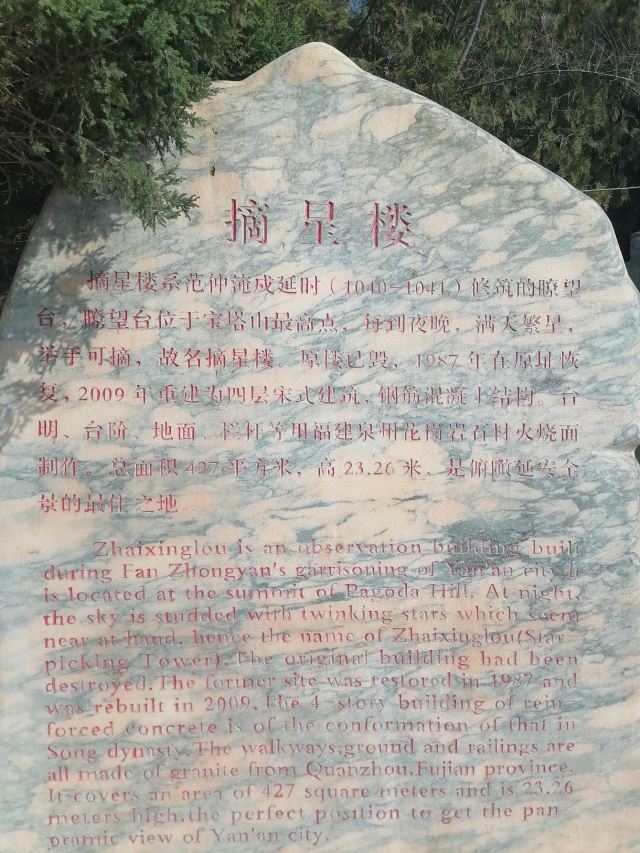 摘星楼
摘星楼系范仲淹戍延时（1040-1041）修筑的瞭望
台，瞭望台位于宝塔山最高点，每到夜晚，满天繁星，
举手可摘，故名摘星楼。原楼已毁，1987年在原址恢
复，2009年重建为四层宋式建筑，钢筋混凝土结构。台
明、台阶、地面、栏杆等用福建泉州花岗岩石材火烧面
制作。总面积427平方米，高23.26米，是俯瞰延安全
景的最佳之地
Zhaixinglou is an observation building built
during Fan Zhongyan's garrisoning of Yan'an city.It
is located at the summit of Pagoda Hill. At night,
the sky is studded with twinking stars which seem
near at hand, hence the name of Zhaixinglou(Star
picking Tower).The original building had been
destroyed.The former site was restored in 1987 and
was rebuilt in 2009.The 4-story building of rein
forced concrete is of the conformation of that in
Song dynasty.The walkways,ground and railings are
all made of granite from Quanzhou,Fujian province.
It covers an area of 427 square meters and is 23.26
meters high,the perfect position to get the pan
pramic view of Yan'an city.